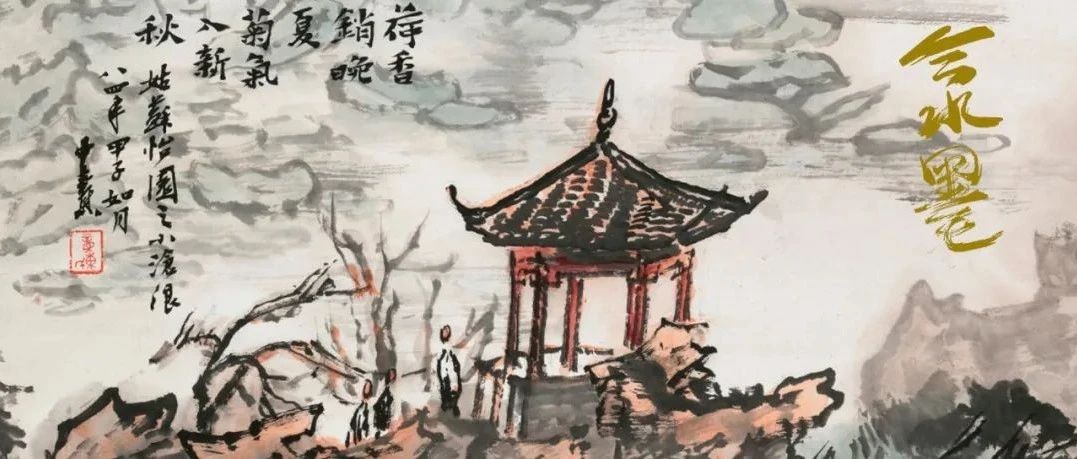 水墨
荷香
銷晚
夏
菊氣
入新
秋
姑蘇怡園之小滄浪
八四年甲子如月